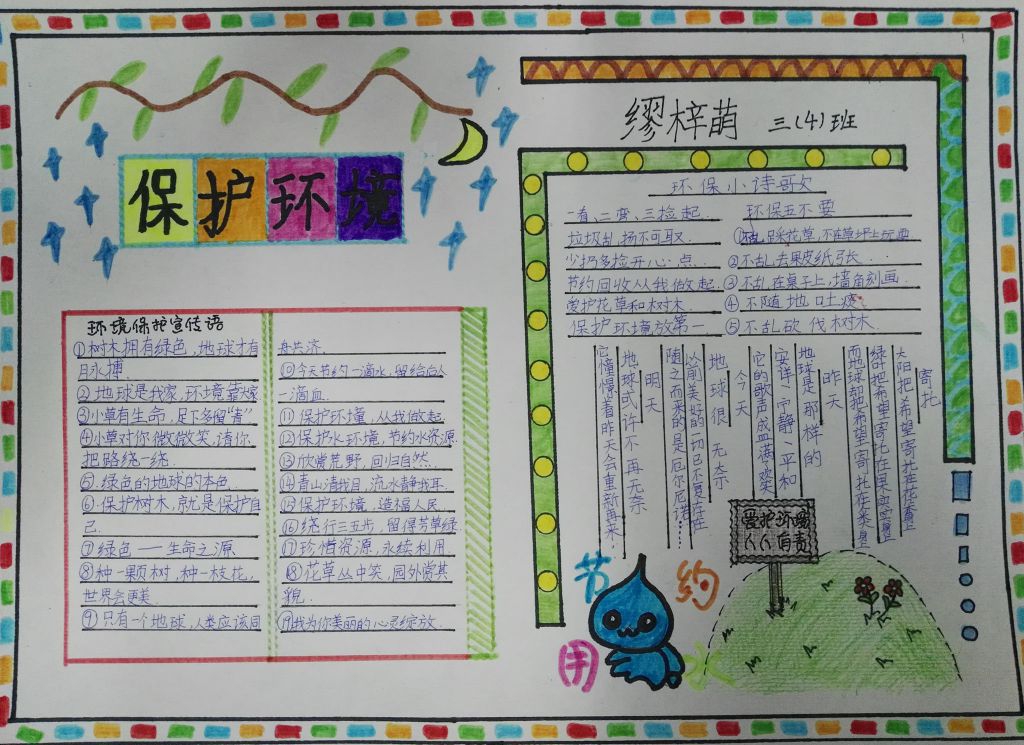 保护环境
环境保护宣传语
①树木拥有绿色,地球才有
脉搏.
②地球是我家,环境靠大家
③小草有生命,足下多留“青”
④小草对你微微笑,请你
把路绕一绕.
⑤绿色的地球的本色.
⑥保护树木,就是保护自
己.
⑦绿色——生命之源.
⑧种一颗树,种一枝花,
世界会更美.
⑨只有一个地球,人类应该同
舟共济.
⑩今天节约一滴水,留给后人
一滴血.
⑪保护环境,从我做起.
⑫保护水环境,节约水资源.
⑬欣赏荒野,回归自然.
⑭青山清我目,流水静我耳.
⑮保护环境,造福人民.
⑯绕行三五步,留得芳草绿
⑰珍惜资源,永续利用
⑱花草丛中笑,园外赏其
貌.
⑲我为你美丽的心灵绽放.
缪梓萌 三(4)班
环保小诗歌
一看、二弯、三捡起.
垃圾乱扬不可取.
少扔多捡开心点.
节约回收从我做起.
爱护花草和树木.
保护环境放第一
环保五不要
①不乱踩花草,不在草坪上玩耍.
②不乱丢果皮纸张.
③不乱在桌子上,墙角刻画.
④不随地吐痰.
⑤不乱砍伐树木.
寄托
太阳把希望寄托在花蕾上
绿叶把希望寄托在果实上
而地球却把希望寄托在人类上
昨天
地球是那样的
安详、宁静、平和
它的歌声成皿满欢笑
今天
地球很无奈
以前美好的一切已不复存在
随之而来的是厄尔尼诺……
明天
地球或许不再无奈
它憧憬着昨天会重新再来.
爱护环境
人人有责
节约
用水